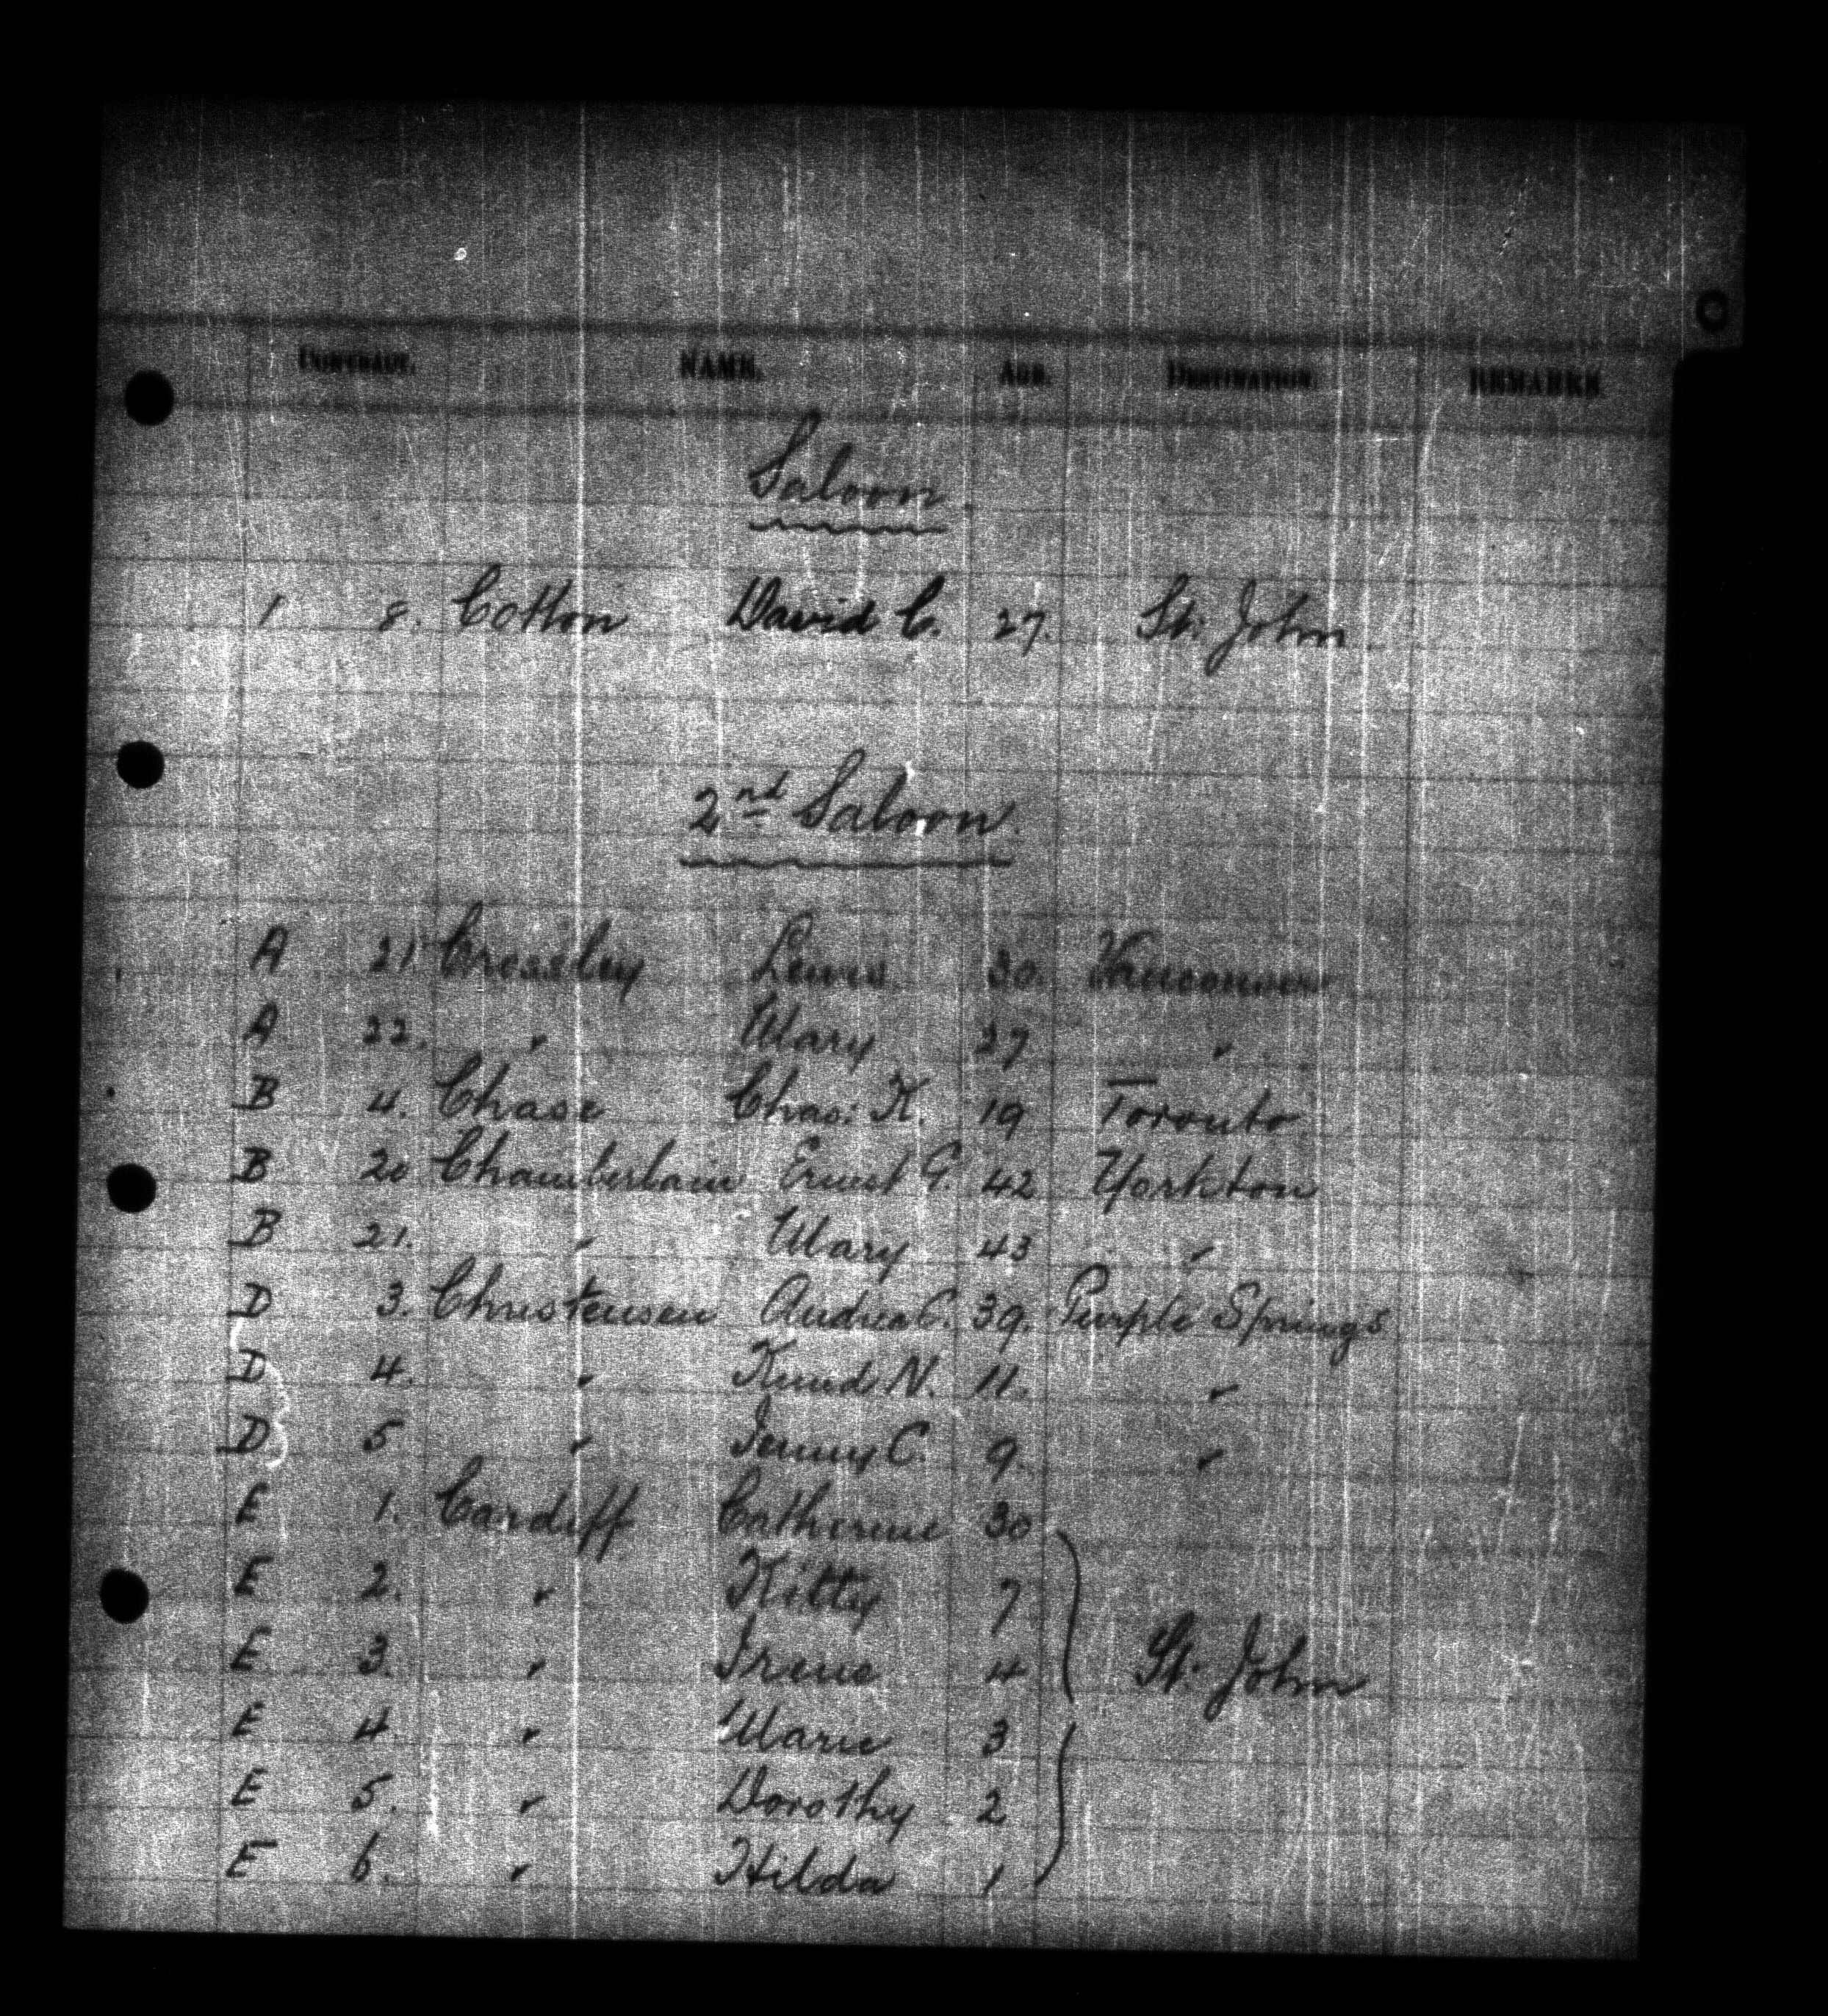 CONTRACT. NAME. AGE. DESTINATION. REMARKS
Saloon
1 8. Cotton David C. 27. St. John
2nd Saloon.
A 21 Crossley Lewis 30. Vancouver
A 22. " Mary 27 "
B 4. Chase Chas: K. 19 Toronto
B 20 Chamberlain Ernest G. 42 Yorkton
B 21. " Mary 43 "
D 3. Christensen Andrea C. 39. Purple Springs
D 4. " Knud N. 11. "
D 5 " Jenny C. 9. "
E 1. Cardiff Catherine 30
E 2. " Kitty 7
E 3. " Irene 4 St. John
E 4. " Marie 3
E 5. " Dorothy 2
E 6. " Hilda 1